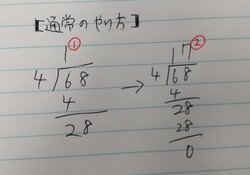 [通常のやり方]
1 ① 17 ②
4)68 → 4)68
4 4
28 28
28
0